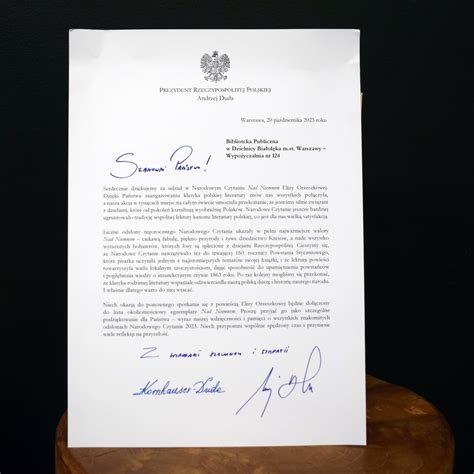 Prezydent Rzeczypospolitej Polskiej
Andrzej Duda
Warszawa, 20 października 2023 roku
Biblioteka Publiczna
w Dzielnicy Białołęka m.st. Warszawy –
Wypożyczalnia nr 124
Szanowni Państwo!
Serdecznie dziękujemy za udział w Narodowym Czytaniu Nad Niemnem Elizy Orzeszkowej.
Dzięki Państwa zaangażowaniu klasyka polskiej literatury znów nas wszystkich połączyła,
a nasza akcja w tysiącach miejsc na całym świecie umocniła przekonanie, że jesteśmy silnie związani
z dziełami, które od pokoleń kształtują wyobraźnię Polaków. Narodowe Czytanie jeszcze bardziej
ugruntowało tradycję wspólnej lektury kanonu literatury polskiej, co jest dla nas wielką satysfakcją.
Liczne odsłony tegorocznego Narodowego Czytania ukazały w pełni najważniejsze walory
Nad Niemnem – ciekawą fabułę, piękno przyrody i żywe dziedzictwo Kresów, a nade wszystko
wyrazistych bohaterów, których losy są splecione z dziejami Rzeczypospolitej. Cieszymy się,
że Narodowe Czytanie nawiązywało też do trwającej 160. rocznicy Powstania Styczniowego,
które pisarka uczyniła jednym z najistotniejszych tematów swojej książki, i że lektura powieści
towarzyszyła wielu lokalnym uroczystościom, dając sposobność do upamiętnienia powstańców
i pogłębienia wiedzy o insurekcyjnym zrywie 1863 roku. Po raz kolejny mogliśmy się przekonać,
że klasyka rodzimej literatury wspaniale odzwierciedla naszą polską duszę i historię naszego narodu.
I właśnie dlatego warto do niej wracać.
Niech okazją do ponownego spotkania się z powieścią Elizy Orzeszkowej będzie dołączony
do listu okolicznościowy egzemplarz Nad Niemnem. Proszę przyjąć go jako szczególne
podziękowanie dla Państwa – wyraz naszej wdzięczności i pamięci o wszystkich znakomitych
odsłonach Narodowego Czytania 2023. Niech przypomni wspólnie spędzony czas i przyniesie
wiele refleksji na przyszłość.
Z wyrazami szacunku i sympatii
Kornhauser-Duda